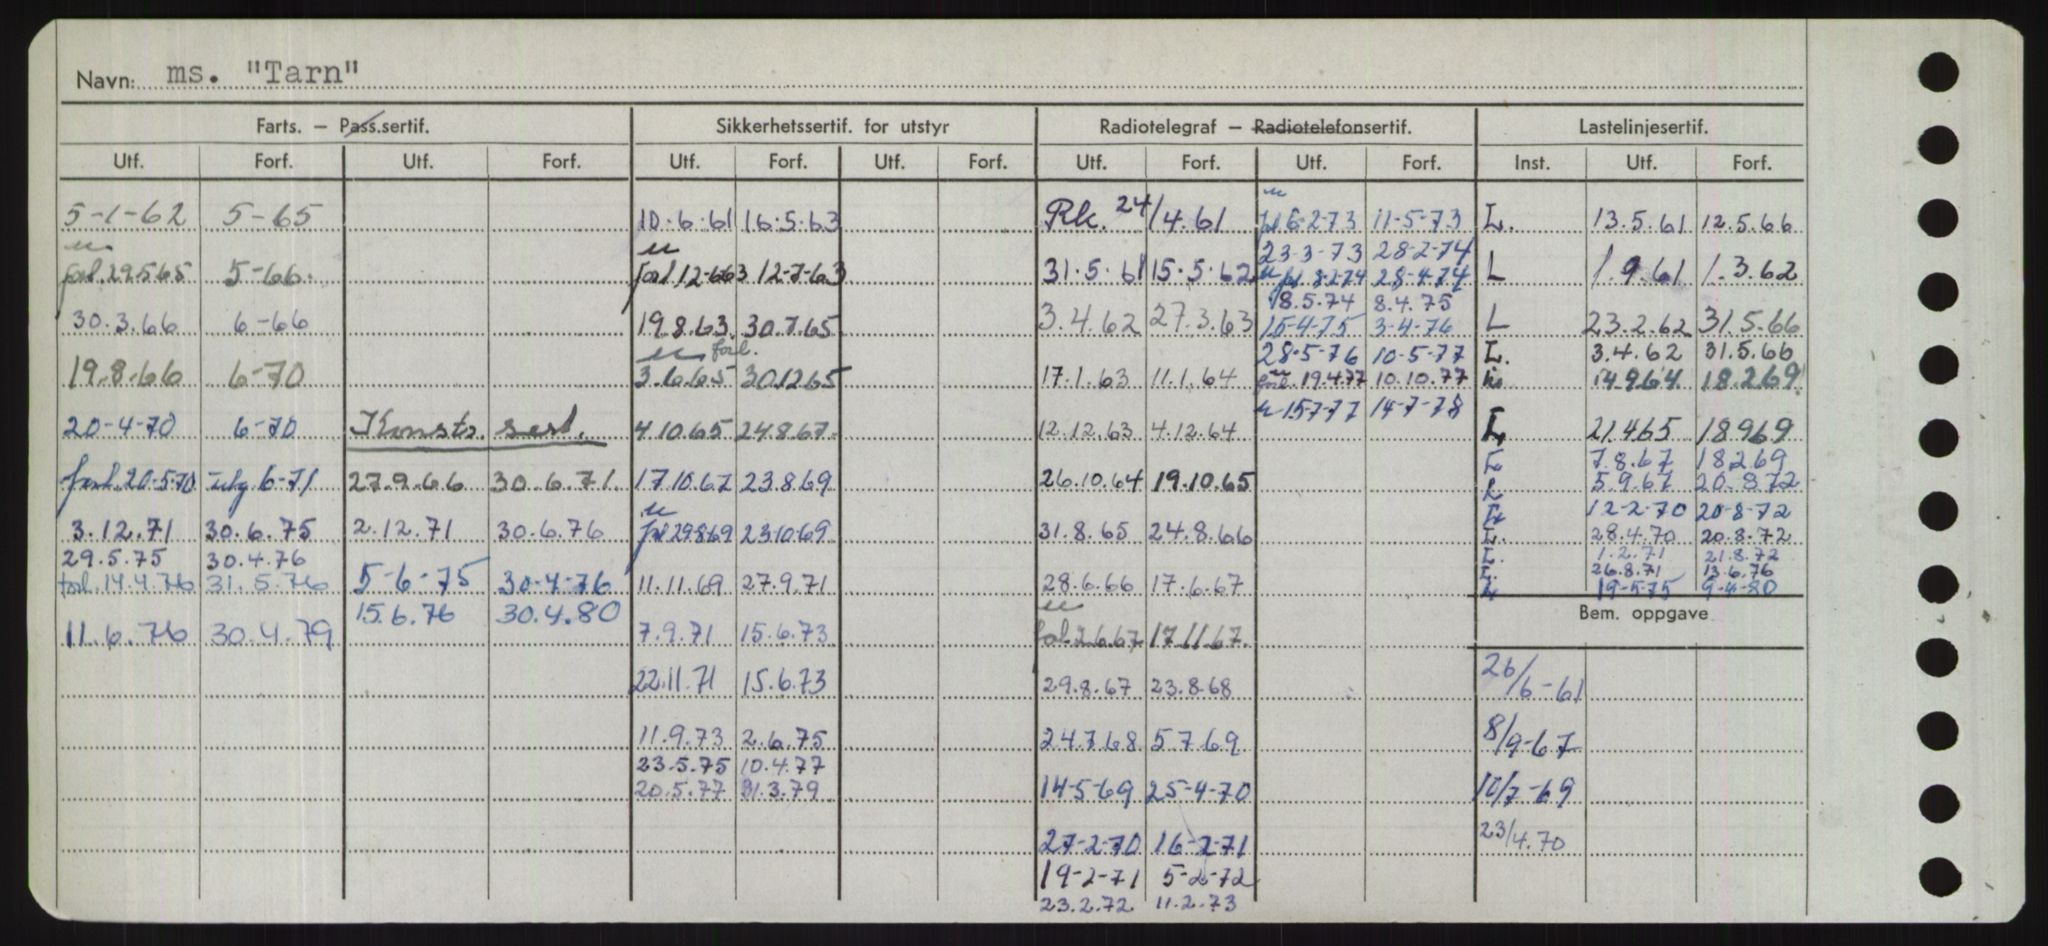 Navn: ms. "Tarn"
Farts. – Pass.sertif. Sikkerhetssertif. for utstyr Radiotelegraf – Radiotelefonsertif. Lastelinjesertif.
Utf. Forf. Utf. Forf. Utf. Forf. Utf. Forf. Utf. Forf. Utf. Forf. Inst. Utf. Forf.
5-1-62 5-65 10.6.61 16.5.63 Rk. 24/4.61 6-2-73 11-5-73 L. 13.5.61 12.5.66
23-3-73 28-2-74
forl. 29.5.65 5-66. forl 12-6.63 12-7-63 31.5.61 15.5.62 8-2-74 28-4-74 L 1.9.61 1.3.62
18.5.74 8.4.75
30.3.66 6-66 19.8.63. 30.7.65 3.4.62 27.3.63 15-4-75 3-4-76 L 23.2.62 31.5.66
forl. 28-5-76 10-5-77 L. 3.4.62 31.5.66
19.8.66 6-70 3.6.65 30.12.65 17.1.63 11.1.64 19.4.77 10.10.77 14.9.64 18.2.69
15.7.77 14-7-78
20-4-70 6-70 Konstr. sert. 4.10.65 24.8.67. 12.12.63 4.12.64 L 21.4.65 18.9.69
L 7.8.67 18.2.69
forl. 20-5-70 utg. 6-71 27.9.66 30.6.71. 17.10.67 23.8.69 26.10.64 19.10.65 5.9.67 20.8.72
12-2-70 20-8-72
3.12.71 30.6.75 2.12.71 30.6.76 29.8.69 23.10.69 31.8.65 24.8.66 L. 28.4.70 20.8.72
29.5.75 30.4.76 L. 1.2.71 21.8.72
L. 26.8.71 13.6.76
forl. 14.4.76 31.5.76 5-6-75 30-4-76 11.11.69 27.9.71 28.6.66 17.6.67 L 19-5-75 9-4-80
15.6.76 30.4.80 Bem. oppgave
11.6.76 30.4.79 7.9.71 15.6.73 forl. 2.6.67 17.11.67.
22.11.71 15.6.73 29.8.67 23.8.68 26/6-61
11.9.73 2.6.75 24.7.68 5.7.69 8/9-67
23.5.75 10.4.77
20.5.77 31.3.79 14-5-69 25-4-70 10/7-69
27-2-70 16-2-71 23/4.70
19-2-71 5-2-72
23.2.72 11.2.73